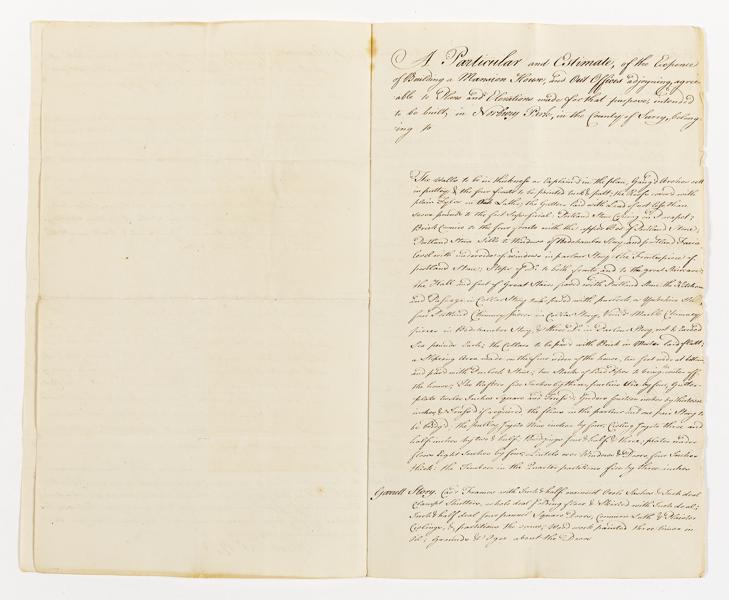 A Particular and Estimate, of the Expence
of Building a Mansion House, and Out Offices adjoyning, agre-
able to Plans and Elevations made for that purpose, intended
to be built, in Norbury Park, in the County of Surry, belong-
ing to
The Walls to be in thickness as Explained in the plan, Gaug'd Arches sett
in putty, & the four fronts to be pointed tuck & patt; the Roofs cover'd with
plain Tyles in Oak Laths; the Gutters laid with Lead of not less than
seven pounds to the foot Superficial; Portland Stone Coping on Parapet;
Brick Corners to the four fronts with the upper Bed of Portland Stone;
Portland Stone Sills to Windows of Bedchamber Story, and portland Fascia
Level with underside of windows in parlour Story, two Frontispieces of
portland Stone; Steps of Do. to both fronts, and to the great Staircase;
the Hall and foot of Great Stairs paved with Portland Stone, the Kitchen
and Passage in Cellar Story to be paved with purbeck or Yorkshire Stone,
four Portland Chimney pieces in Cellar Story, Vein'd Marble Chimney
pieces in Bedchamber Story, & three Do. in Parlour Story, not to exceed
Six pounds Each; the Cellars to be pav'd with Brick in Mortar laid flatt;
a Sloping Area made on the four sides of the house, ten feet wide at bottom
and paved with Purbeck Stone; ten Stacks of Lead Pipes to bring water off
the house; The Rafters five Inches by three, purlins Six by five, Gutter
plate twelve Inches Square and Truss'd; Girders fourteen inches by thirteen
inches & Truss'd if required the floors in the parlour and one pair Story to
be bridg'd, the Bridging Joysts Nine inches by four, Cieling Joysts three and
half inches by two & half; Bridgings four & half & three; plates under
floors Eight Inches by four, Lintels over Windows & Doors four Inches
thick; the Timbers in the Quarter partitions five by three inches
Garrett Story. Car'd Frames with Inch & half
Clampt Shutters, whole deal folding floor & Skirted with Inch deal;
Inch & half deal four pannel Square Doors, Common Lath & Plaister
Cielings, & partitions the same; Wood work painted three times in
oil; Grounds & Ogee about the Doors